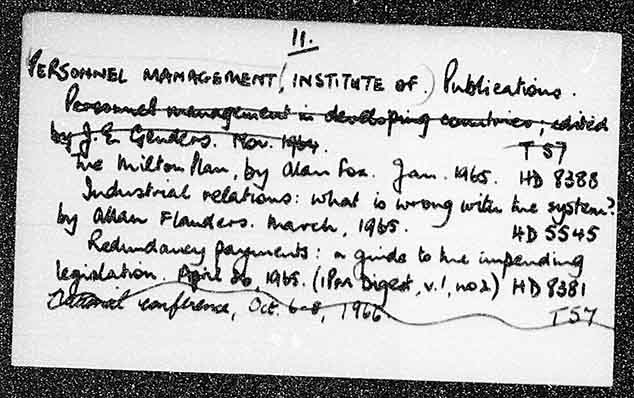 11.
PERSONNEL MANAGEMENT (INSTITUTE OF) Publications.
Personnel management in developing countries; edited
by J.E. Genders. Nov. 1964. T57
The Milton Plan, by Alan Fox. Jan. 1965. HD 8388
Industrial relations: what is wrong with the system?
by Allan Flanders. March, 1965. HD 5545
Redundancy payments: a guide to the impending
legislation. April 26, 1965. (IPM Digest, v.1, no2) HD 8381
National conference, Oct. 6-8, 1966 T57